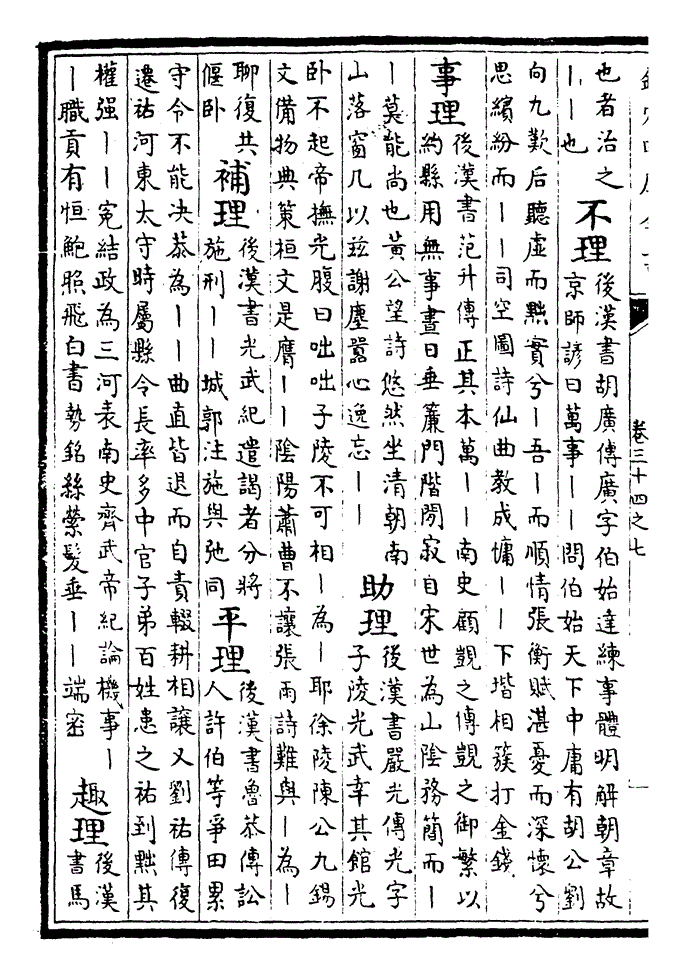 欽定四庫全書
卷三十四之七
一
也者治之
丨丨也
不理
後漢書胡廣傳廣字伯始達練事體明解朝章故
京師諺曰萬事丨丨問伯始天下中庸有胡公劉
向九歎后聽虛而黜實兮丨吾丨而順情張衡賦湛憂而深懷兮
思繽紛而丨丨司空圖詩仙曲教成慵丨丨下堦相簇打金錢
事理
後漢書范升傳正其本萬丨丨南史顧覬之傳覬之御繁以
約縣用無事晝日垂簾門階閒寂自宋世為山陰務簡而丨
丨莫能尚也黃公望詩悠然坐清朝南
山落窗几以玆謝塵囂心逸忘丨丨
助理
後漢書嚴光傳光字
子陵光武幸其館光
卧不起帝撫光腹曰咄咄子陵不可相丨為丨耶徐陵陳公九錫
文備物典策桓文是膺丨丨陰陽蕭曹不讓張雨詩難與丨為丨
聊復共
偃卧
補理
後漢書光武紀遣謁者分將
施刑丨丨城郭注施與弛同
平理
後漢書魯恭傳訟
人許伯等爭田累
守令不能决恭為丨丨曲直皆退而自責輟耕相讓又劉祐傳復
遷祐河東太守時屬縣令長率多中官子弟百姓患之祐到黜其
權强丨丨寃結政為三河表南史齊武帝紀論機事丨
丨職貢有恒鮑照飛白書勢銘絲縈髮垂丨丨端密
趣理
後漢
書馬